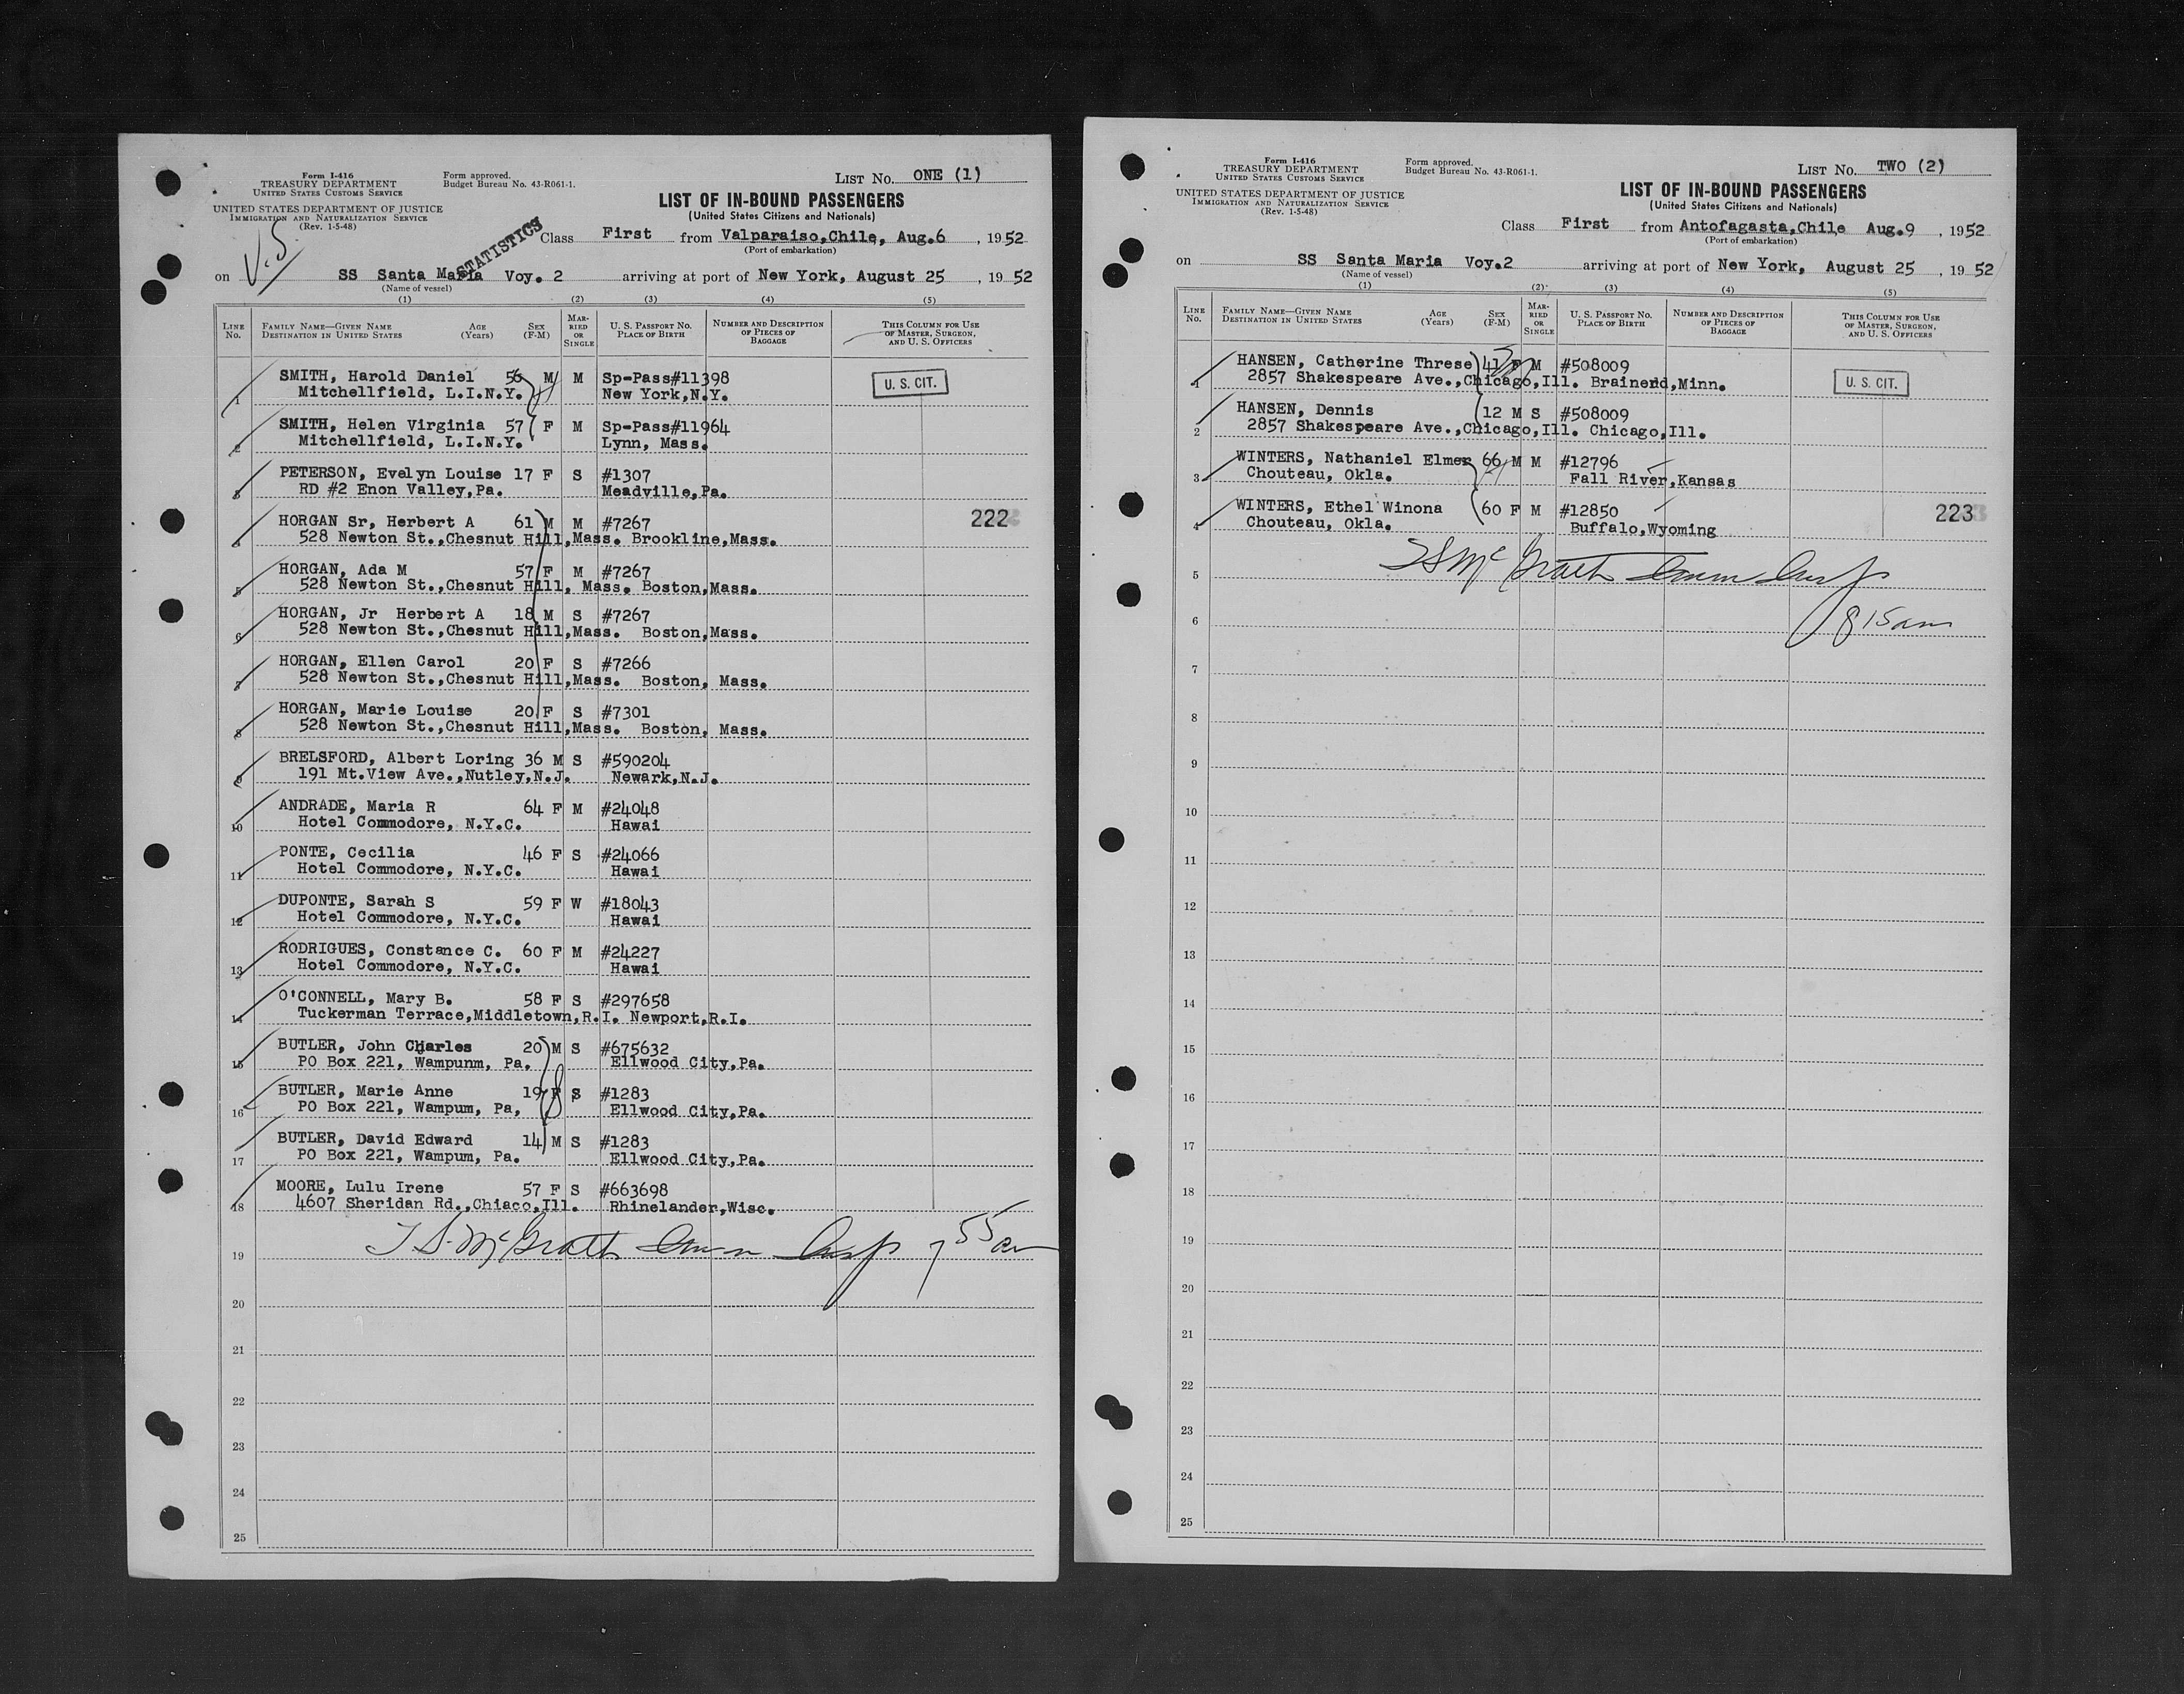 Form I-416
TREASURY DEPARTMENT
UNITED STATES CUSTOMS SERVICE
UNITED STATES DEPARTMENT OF JUSTICE
IMMIGRATION AND NATURALIZATION SERVICE
(Rev. 1-5-48)
Form approved.
Budget Bureau No. 43-R061-1.
LIST NO. ONE (1)
LIST OF IN-BOUND PASSENGERS
(United States Citizens and Nationals)
STATISTICS
Class First from Valparaiso,Chile, Aug.6, 1952
(Port of embarkation)
on SS Santa Maria Voy. 2 arriving at port of New York, August 25, 1952
(Name of vessel)
(1) (2) (3) (4) (5)
LINE NO. FAMILY NAME—GIVEN NAME DESTINATION IN UNITED STATES AGE (Years) SEX (F-M) MARRIED OR SINGLE U. S. PASSPORT NO. PLACE OF BIRTH NUMBER AND DESCRIPTION OF PIECES OF BAGGAGE THIS COLUMN FOR USE OF MASTER, SURGEON, AND U. S. OFFICERS
1 SMITH, Harold Daniel 56 M M Sp-Pass#11398 U. S. CIT.
Mitchellfield, L.I.N.Y. New York,N.Y.
2 SMITH, Helen Virginia 57 F M Sp-Pass#11964
Mitchellfield, L.I.N.Y. Lynn, Mass.
3 PETERSON, Evelyn Louise 17 F S #1307
RD #2 Enon Valley,Pa. Meadville,Pa.
4 HORGAN Sr, Herbert A 61 M M #7267 222
528 Newton St.,Chesnut Hill,Mass. Brookline,Mass.
5 HORGAN, Ada M 57 F M #7267
528 Newton St.,Chesnut Hill, Mass. Boston,Mass.
6 HORGAN, Jr Herbert A 18 M S #7267
528 Newton St.,Chesnut Hill,Mass. Boston,Mass.
7 HORGAN, Ellen Carol 20 F S #7266
528 Newton St.,Chesnut Hill,Mass. Boston, Mass.
8 HORGAN, Marie Louise 20 F S #7301
528 Newton St.,Chesnut Hill,Mass. Boston, Mass.
9 BRELSFORD, Albert Loring 36 M S #590204
191 Mt.View Ave.,Nutley,N.J. Newark,N.J.
10 ANDRADE, Maria R 64 F M #24048
Hotel Commodore, N.Y.C. Hawai
11 PONTE, Cecilia 46 F S #24066
Hotel Commodore, N.Y.C. Hawai
12 DUPONTE, Sarah S 59 F W #18043
Hotel Commodore, N.Y.C. Hawai
13 RODRIGUES, Constance C. 60 F M #24227
Hotel Commodore, N.Y.C. Hawai
14 O'CONNELL, Mary B. 58 F S #297658
Tuckerman Terrace,Middletown,R.I. Newport,R.I.
15 BUTLER, John Charles 20 M S #675632
PO Box 221, Wampunm, Pa. Ellwood City,Pa.
16 BUTLER, Marie Anne 19 F S #1283
PO Box 221, Wampum, Pa, Ellwood City,Pa.
17 BUTLER, David Edward 14 M S #1283
PO Box 221, Wampum, Pa. Ellwood City,Pa.
18 MOORE, Lulu Irene 57 F S #663698
4607 Sheridan Rd.,Chiaco,Ill. Rhinelander,Wisc.
19 T.S. McGrath Imm Insp 7 55 am
20
21
22
23
24
25
Form I-416
TREASURY DEPARTMENT
UNITED STATES CUSTOMS SERVICE
UNITED STATES DEPARTMENT OF JUSTICE
IMMIGRATION AND NATURALIZATION SERVICE
(Rev. 1-5-48)
Form approved.
Budget Bureau No. 43-R061-1.
LIST NO. TWO (2)
LIST OF IN-BOUND PASSENGERS
(United States Citizens and Nationals)
Class First from Antofagasta,Chile Aug.9, 1952
(Port of embarkation)
on SS Santa Maria Voy.2 arriving at port of New York, August 25, 1952
(Name of vessel)
(1) (2) (3) (4) (5)
LINE NO. FAMILY NAME—GIVEN NAME DESTINATION IN UNITED STATES AGE (Years) SEX (F-M) MARRIED OR SINGLE U. S. PASSPORT NO. PLACE OF BIRTH NUMBER AND DESCRIPTION OF PIECES OF BAGGAGE THIS COLUMN FOR USE OF MASTER, SURGEON, AND U. S. OFFICERS
1 HANSEN, Catherine Threse 41 F M #508009 U. S. CIT.
2857 Shakespeare Ave.,Chicago,Ill. Brainerd,Minn.
2 HANSEN, Dennis 12 M S #508009
2857 Shakespeare Ave.,Chicago,Ill. Chicago,Ill.
3 WINTERS, Nathaniel Elmer 66 M M #12796
Chouteau, Okla. Fall River,Kansas
4 WINTERS, Ethel Winona 60 F M #12850 223
Chouteau, Okla. Buffalo,Wyoming
5 TS McGrath Imm Insp
6 8 15 am
7
8
9
10
11
12
13
14
15
16
17
18
19
20
21
22
23
24
25